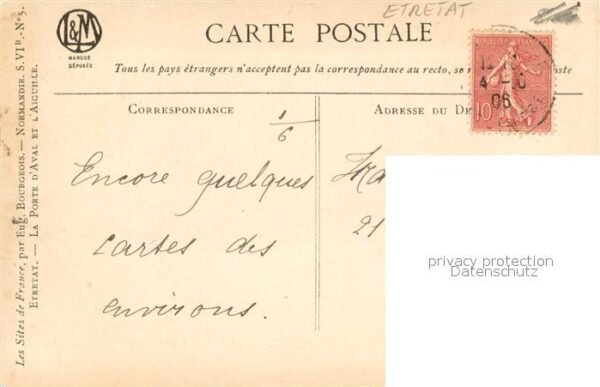 ETRETAT
L&M
MARQUE
DÉPOSÉE
CARTE POSTALE
Tous les pays étrangers n'acceptent pas la correspondance au recto, se
CORRESPONDANCE
ADRESSE DU DE
1/6
RÉPUBLIQUE FRANÇAISE
10
4 - 6
06
Encore quelques
cartes des
environs.
21
privacy protection
Datenschutz
Les Sites de France, par Eug. BOURGEOIS. — NORMANDIE. S. VIB. - No 5.
ETRETAT. — LA PORTE D'AVAL ET L'AIGUILLE.